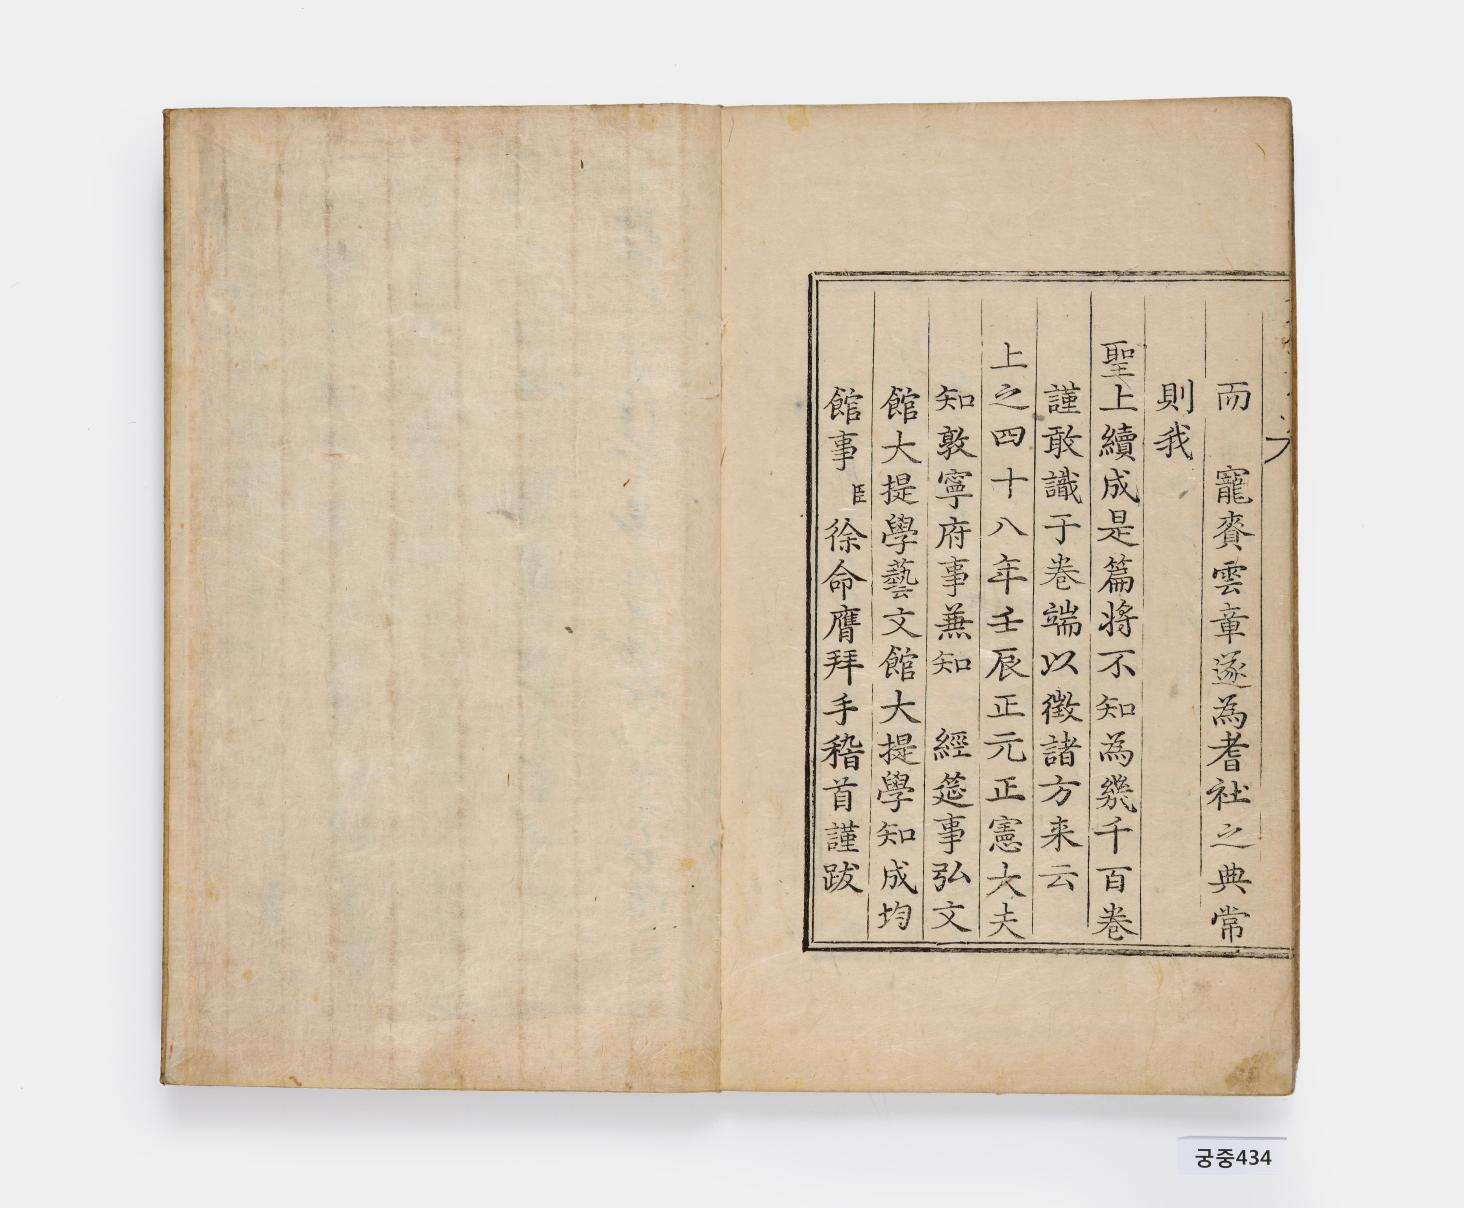 而 寵賚雲章遂為耆社之典常
則我
聖上續成是篇將不知為幾千百卷
謹敢識于卷端以徵諸方来云
上之四十八年壬辰正元正憲大夫
知敦寧府事蒹知 經筵事弘文
館大提學藝文館大提學知成均
館事 臣 徐命膺拜手稽首謹跋
궁중434